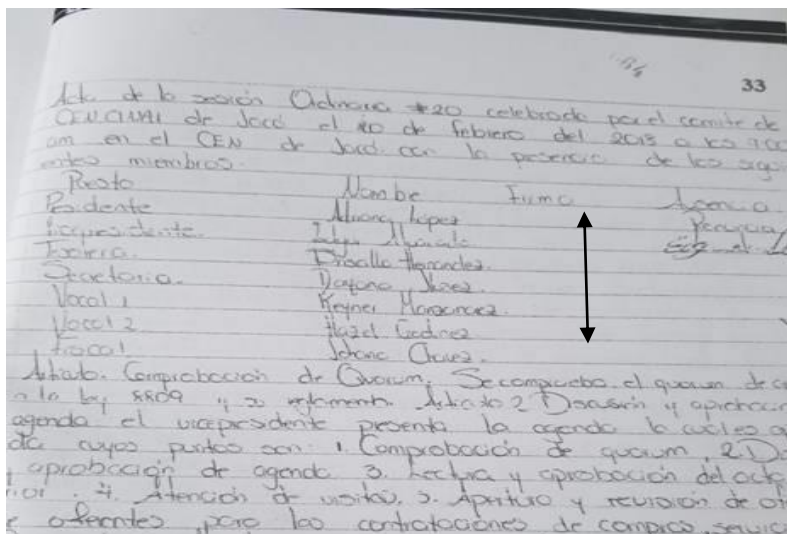 33
Acta de la sesión Ordinaria #20 celebrada por el comite de
CENCINAI de Jacó el 20 de febrero del 2015 a las
am en el CEN de Jacó con la presencia de los sigu
entes miembros.
Puesto Nombe Firma Ausencia
Presidente López Renuncia
Vicepresidente
Tesorera. Priscilla Hernandez.
Secretaria. Dayana
Vocal 1 Keyner
Vocal 2 Hazel Godinez
Fiscal Johana Chavez.
Articulo. Comprobación de Quorum. Se comprueba el quorum de
a la ley 8809 y su reglamento. Articulo 2 Discusión y aprobacion
agenda el vicepresidente presenta la agenda la cuales
da cuyos puntos son: 1. Comprobación de quorum, 2. D
aprobación de agenda 3. Lectura y aprobación del acta
rior. 4. Atención de visitas. 5. Apertura y revisión de of
e oferentes para las contrataciones de compras, servic